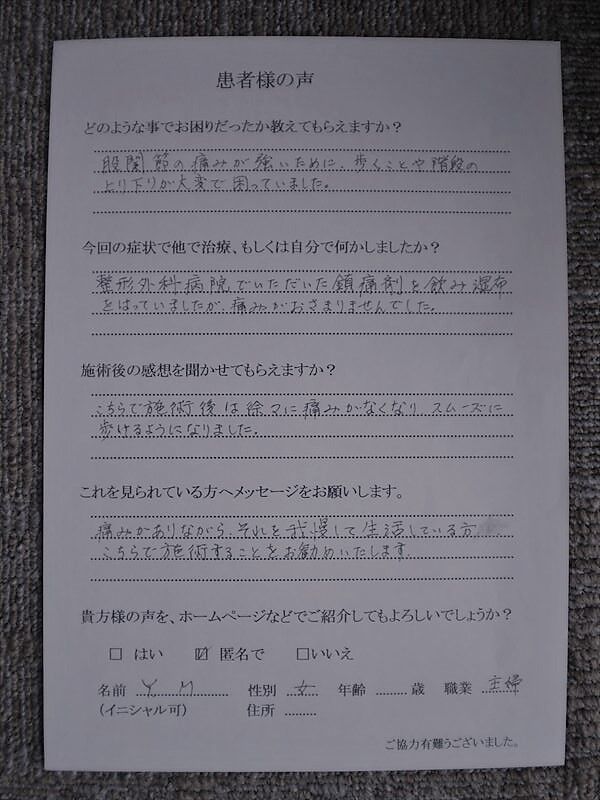 患者様の声
どのような事でお困りだったか教えてもらえますか？
股関節の痛みが強いために、歩くことや階段の
上り下りが大変で困っていました。
今回の症状で他で治療、もしくは自分で何かしましたか？
整形外科病院でいただいた鎮痛剤を飲み湿布
をはっていましたが、痛みがおさまりませんでした。
施術後の感想を聞かせてもらえますか？
こちらで施術後は徐々に痛みがなくなり スムーズに
歩けるようになりました。
これを見られている方へメッセージをお願いします。
痛みがありながら、それを我慢して生活している方
こちらで施術することをお勧めいたします。
貴方様の声を、ホームページなどでご紹介してもよろしいでしょうか？
□ はい ☑ 匿名で □いいえ
名前 Y M 性別 女 年齢 歳 職業 主婦
（イニシャル可） 住所
ご協力有難うございました。